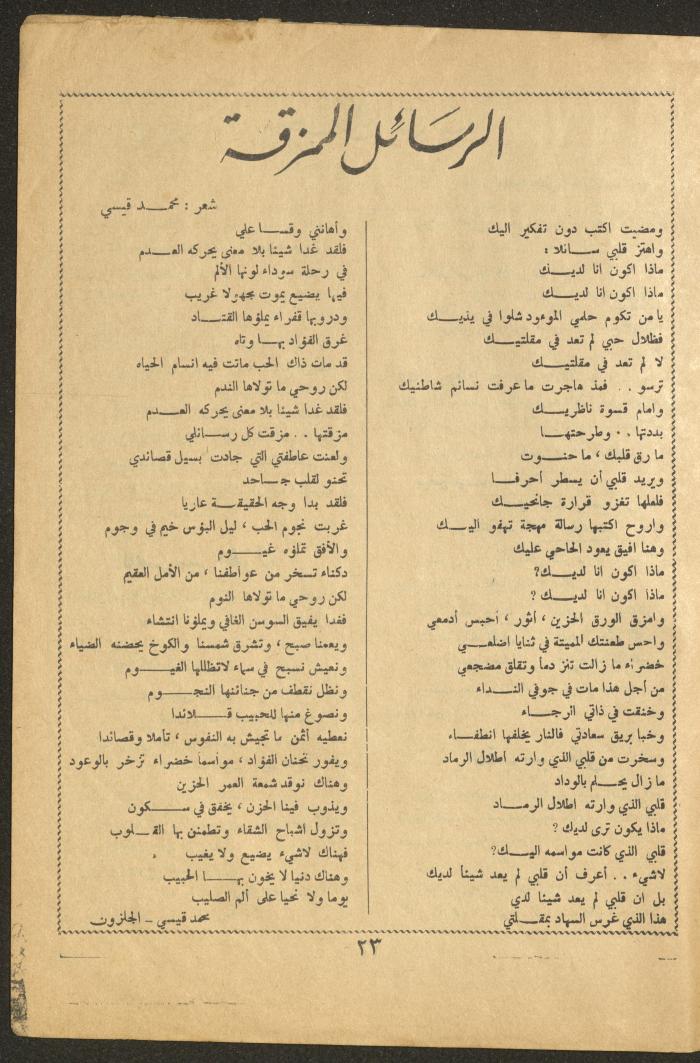 الرسائل الممزقة
شعر : محمد قيسي
ومضيت اكتب دون تفكير اليك
واهتز قلبي سائلا :
ماذا اكون انا لديك
ماذا اكون انا لديك
يا من تكوم حلمي الموءود شلوا في يديك
فظلال حبي لم تعد في مقلتيك
لا لم تعد في مقلتيك
ترسو . . فمذ هاجرت ما عرفت نسائم شاطئيك
وامام قسوة ناظريك
بددتها . . وطرحتها
ما رق قلبك ، ما حنوت
ويريد قلبي أن يسطر أحرفا
فلعلها تغزو قرارة جانحيك
واروح اكتبها رسالة مهجة تهفو اليك
وهنا افيق يعود الحاحي عليك
ماذا اكون انا لديك؟
ماذا اكون انا لديك ؟
وامزق الورق الحزين ، أثور ، أحبس أدمعي
واحس طعنتك المميتة في ثنايا اضلعي
خضراء ما زالت تنز دما وتقلق مضجعي
من أجل هذا مات في جوفي النداء
وخنقت في ذاتي الرجاء
وخبا بريق سعادتي فالنار يخلفها انطفاء
وسخرت من قلبي الذي وارته اطلال الرماد
ما زال يحلم بالوداد
قلبي الذي وارته اطلال الرماد
ماذا يكون ترى لديك ؟
قلبي الذي كانت مواسمه اليك؟
لاشيء . . أعرف أن قلبي لم يعد شيئا لديك
بل ان قلبي لم يعد شيئا لدي
هذا الذي غرس السهاد بمقلتي
وأهانني وقسا علي
فلقد غدا شيئا بلا معنى يحركه العدم
في رحلة سوداء لونها الألم
فيها يضيع يموت مجهولا غريب
ودروبها قفراء يملؤها القتاد
غرق الفؤاد بها وتاه
قد مات ذاك الحب ماتت فيه انسام الحياه
لكن روحي ما تولاها الندم
فلقد غدا شيئا بلا معنى يحركه العدم
مزقتها . . مزقت كل رسائلي
ولعنت عاطفتي التي جادت بسيل قصائدي
تحنو لقلب جاحد
فلقد بدا وجه الحقيقة عاريا
غربت نجوم الحب ، ليل البؤس خيم في وجوم
والأفق تملؤه غيوم
دكناء تسخر من عواطفنا ، من الأمل العقيم
لكن روحي ما تولاها النوم
فغدا يفيق السوسن الغافي ويملؤنا انتشاء
ويعمنا صبح ، وتشرق شمسنا والكوخ يحضنه الضياء
ونعيش نسبح في سماء لاتظللها الغيوم
ونظل نقطف من جنائنها النجوم
ونصوغ منها للحبيب قلائدا
نعطيه أثمن ما تجيش به النفوس ، تأملا وقصائدا
ويفور تحنان الفؤاد ، مواسما خضراء تزخر بالوعود
وهناك نوقد شمعة العمر الحزين
ويذوب فينا الحزن ، يخفق في سكون
وتزول اشباح الشقاء وتطمئن بها القلوب
فهناك لاشيء يضيع ولا يغيب
وهناك دنيا لا يخون بها الحبيب
يوما ولا نحيا على ألم الصليب
محمد قيسي - الجلزون
٢٣